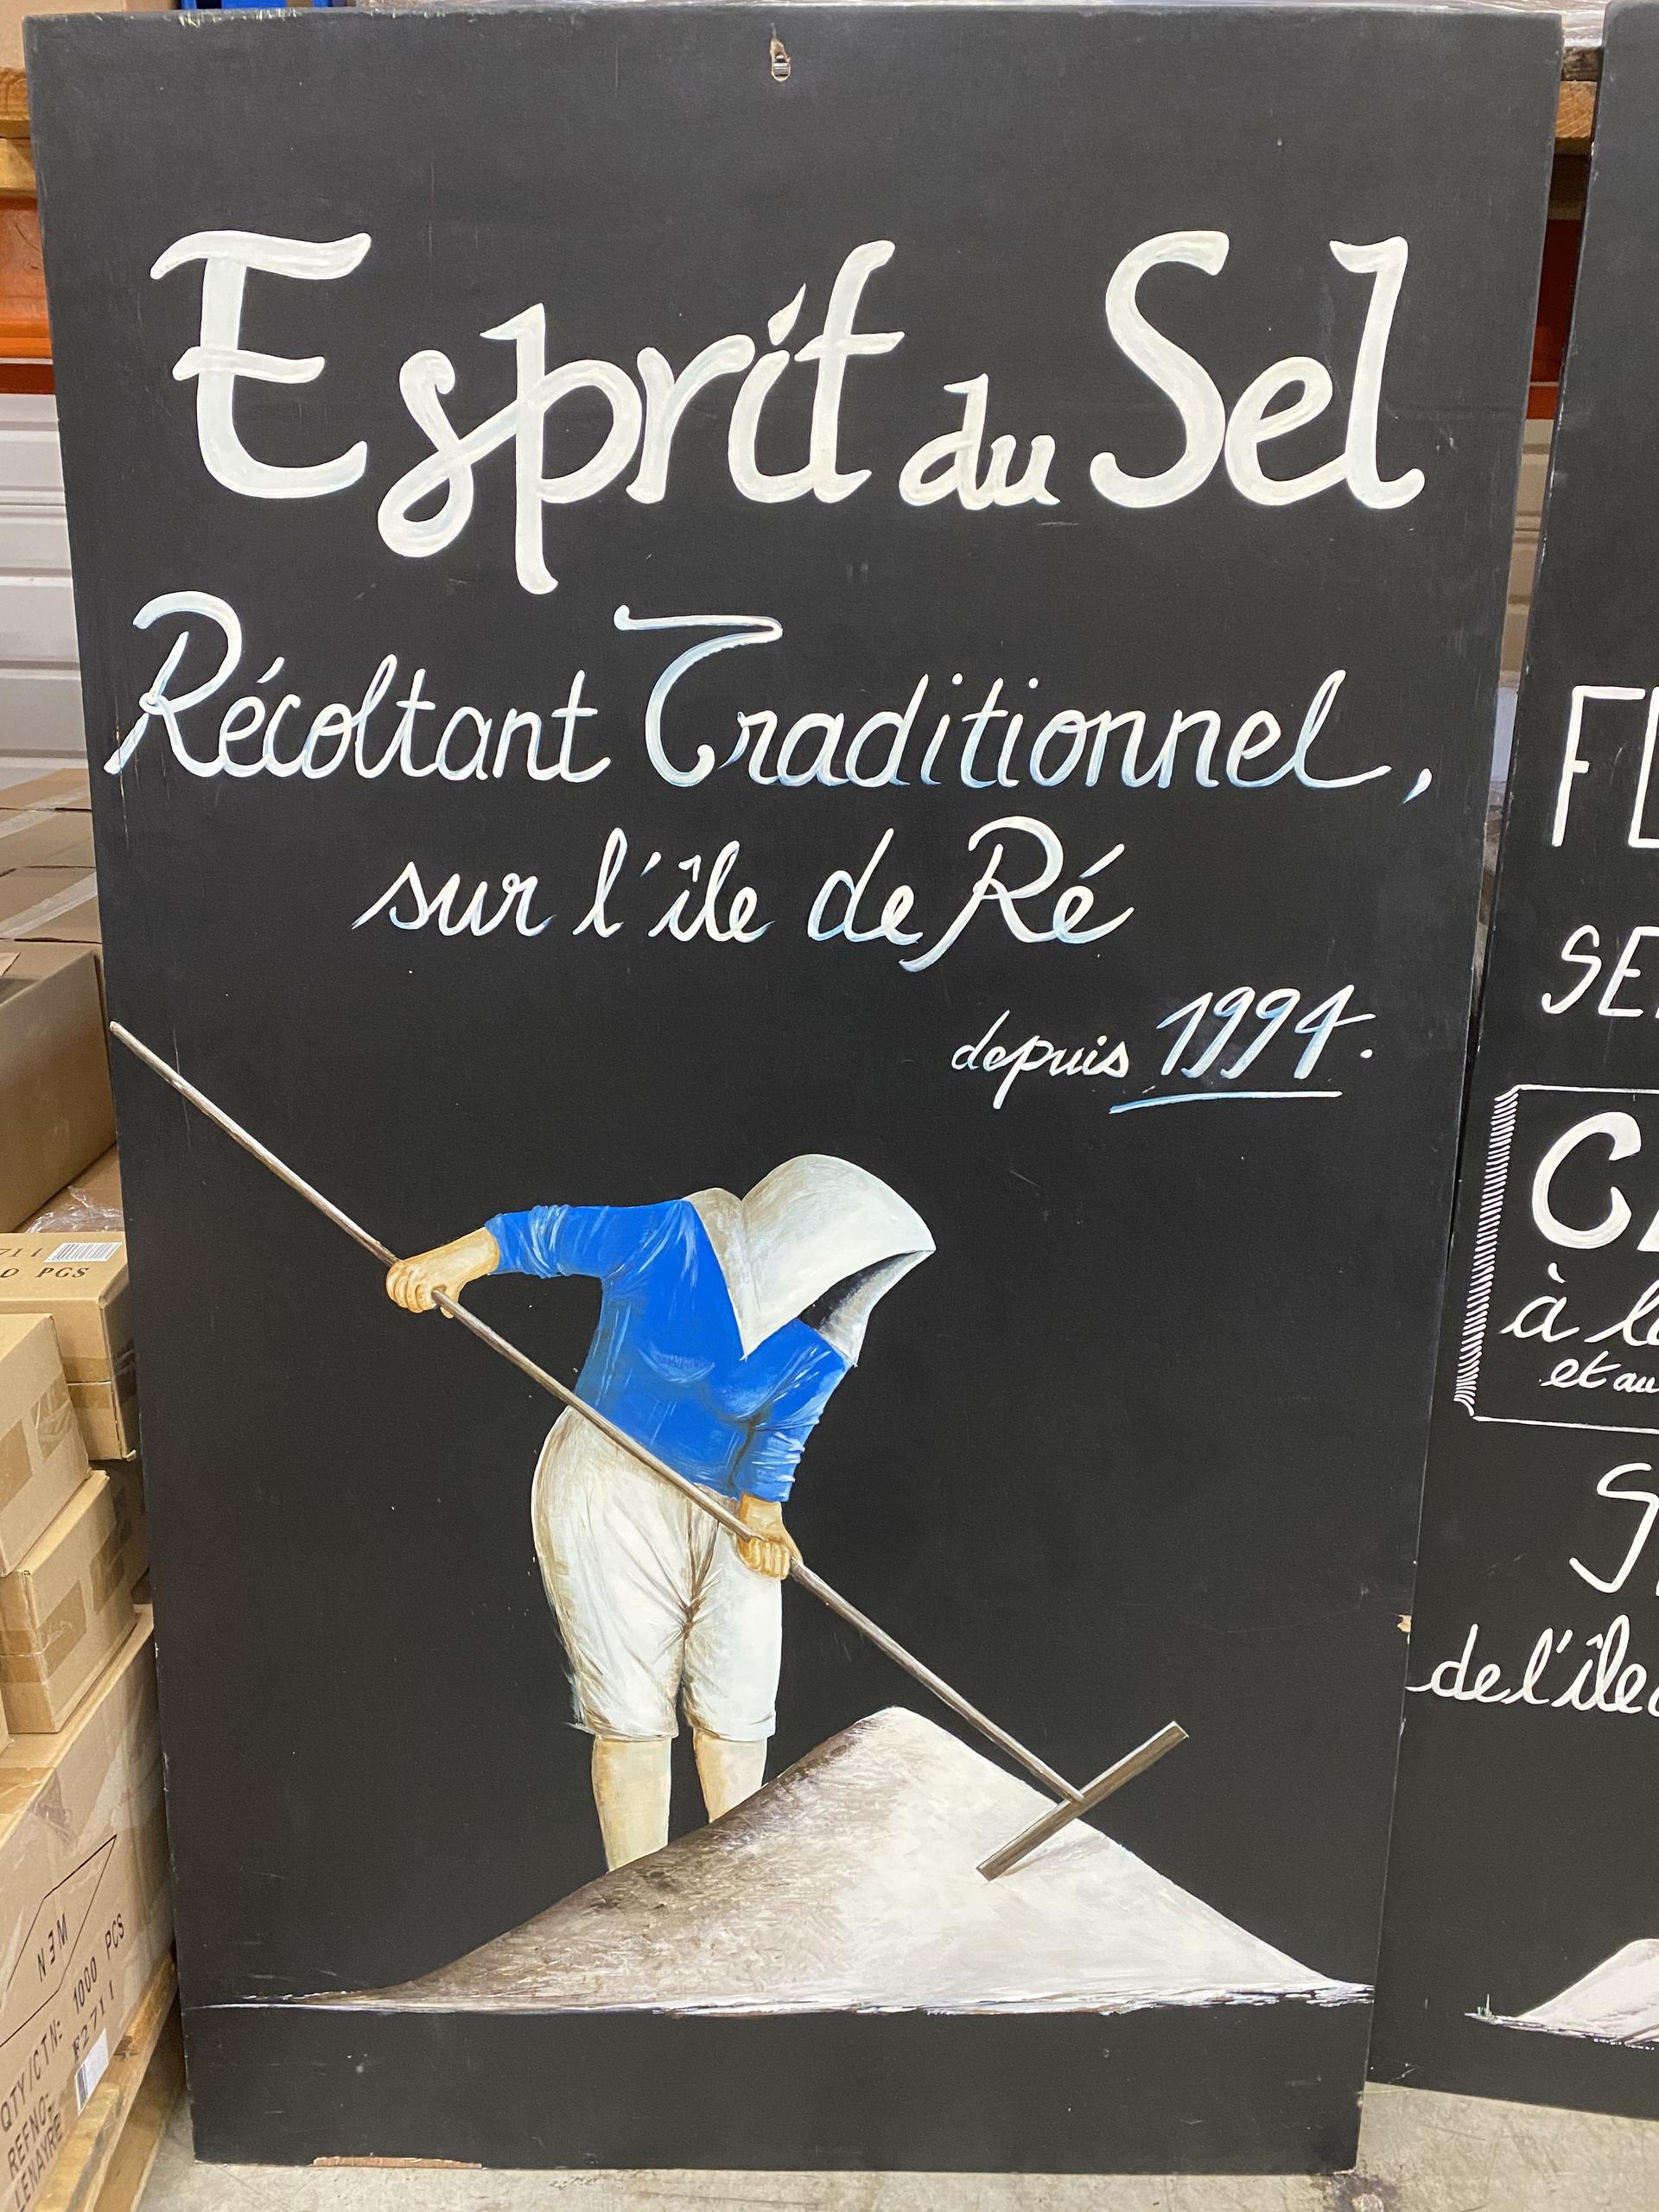 Esprit du Sel
Récoltant Traditionnel,
sur l'île de Ré
depuis 1994.
SE
à
et au
de l'île
D PGS
N3M
QTY/CTN: 1000 PCS
REFNO: F2711
LENAYRE